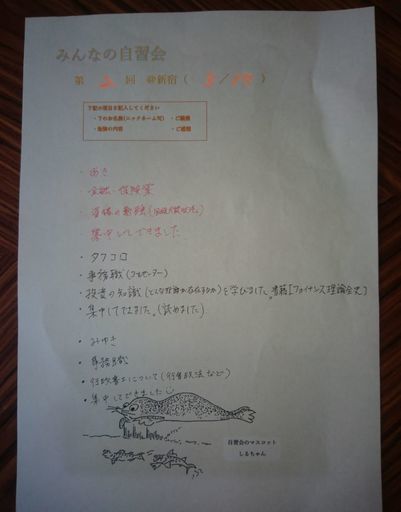 みんなの自習会
第 2 回 @新宿( 3/25 )
下記の項目を記入してください
・下のお名前(ニックネーム可) ・ご職業
・勉強の内容 ・ご感想
・あき
・金融・保険業
・資格の勉強
・集中してできました
・タコロ
・事務職(コールセンター)
・投資の知識 を学びました。書籍[ファイナンス理論全史]
・集中してできました。(読めました)
・みゆき
・事務職
・行政書士について(行政法など)
・集中してできました
自習会のマスコット
しるちゃん